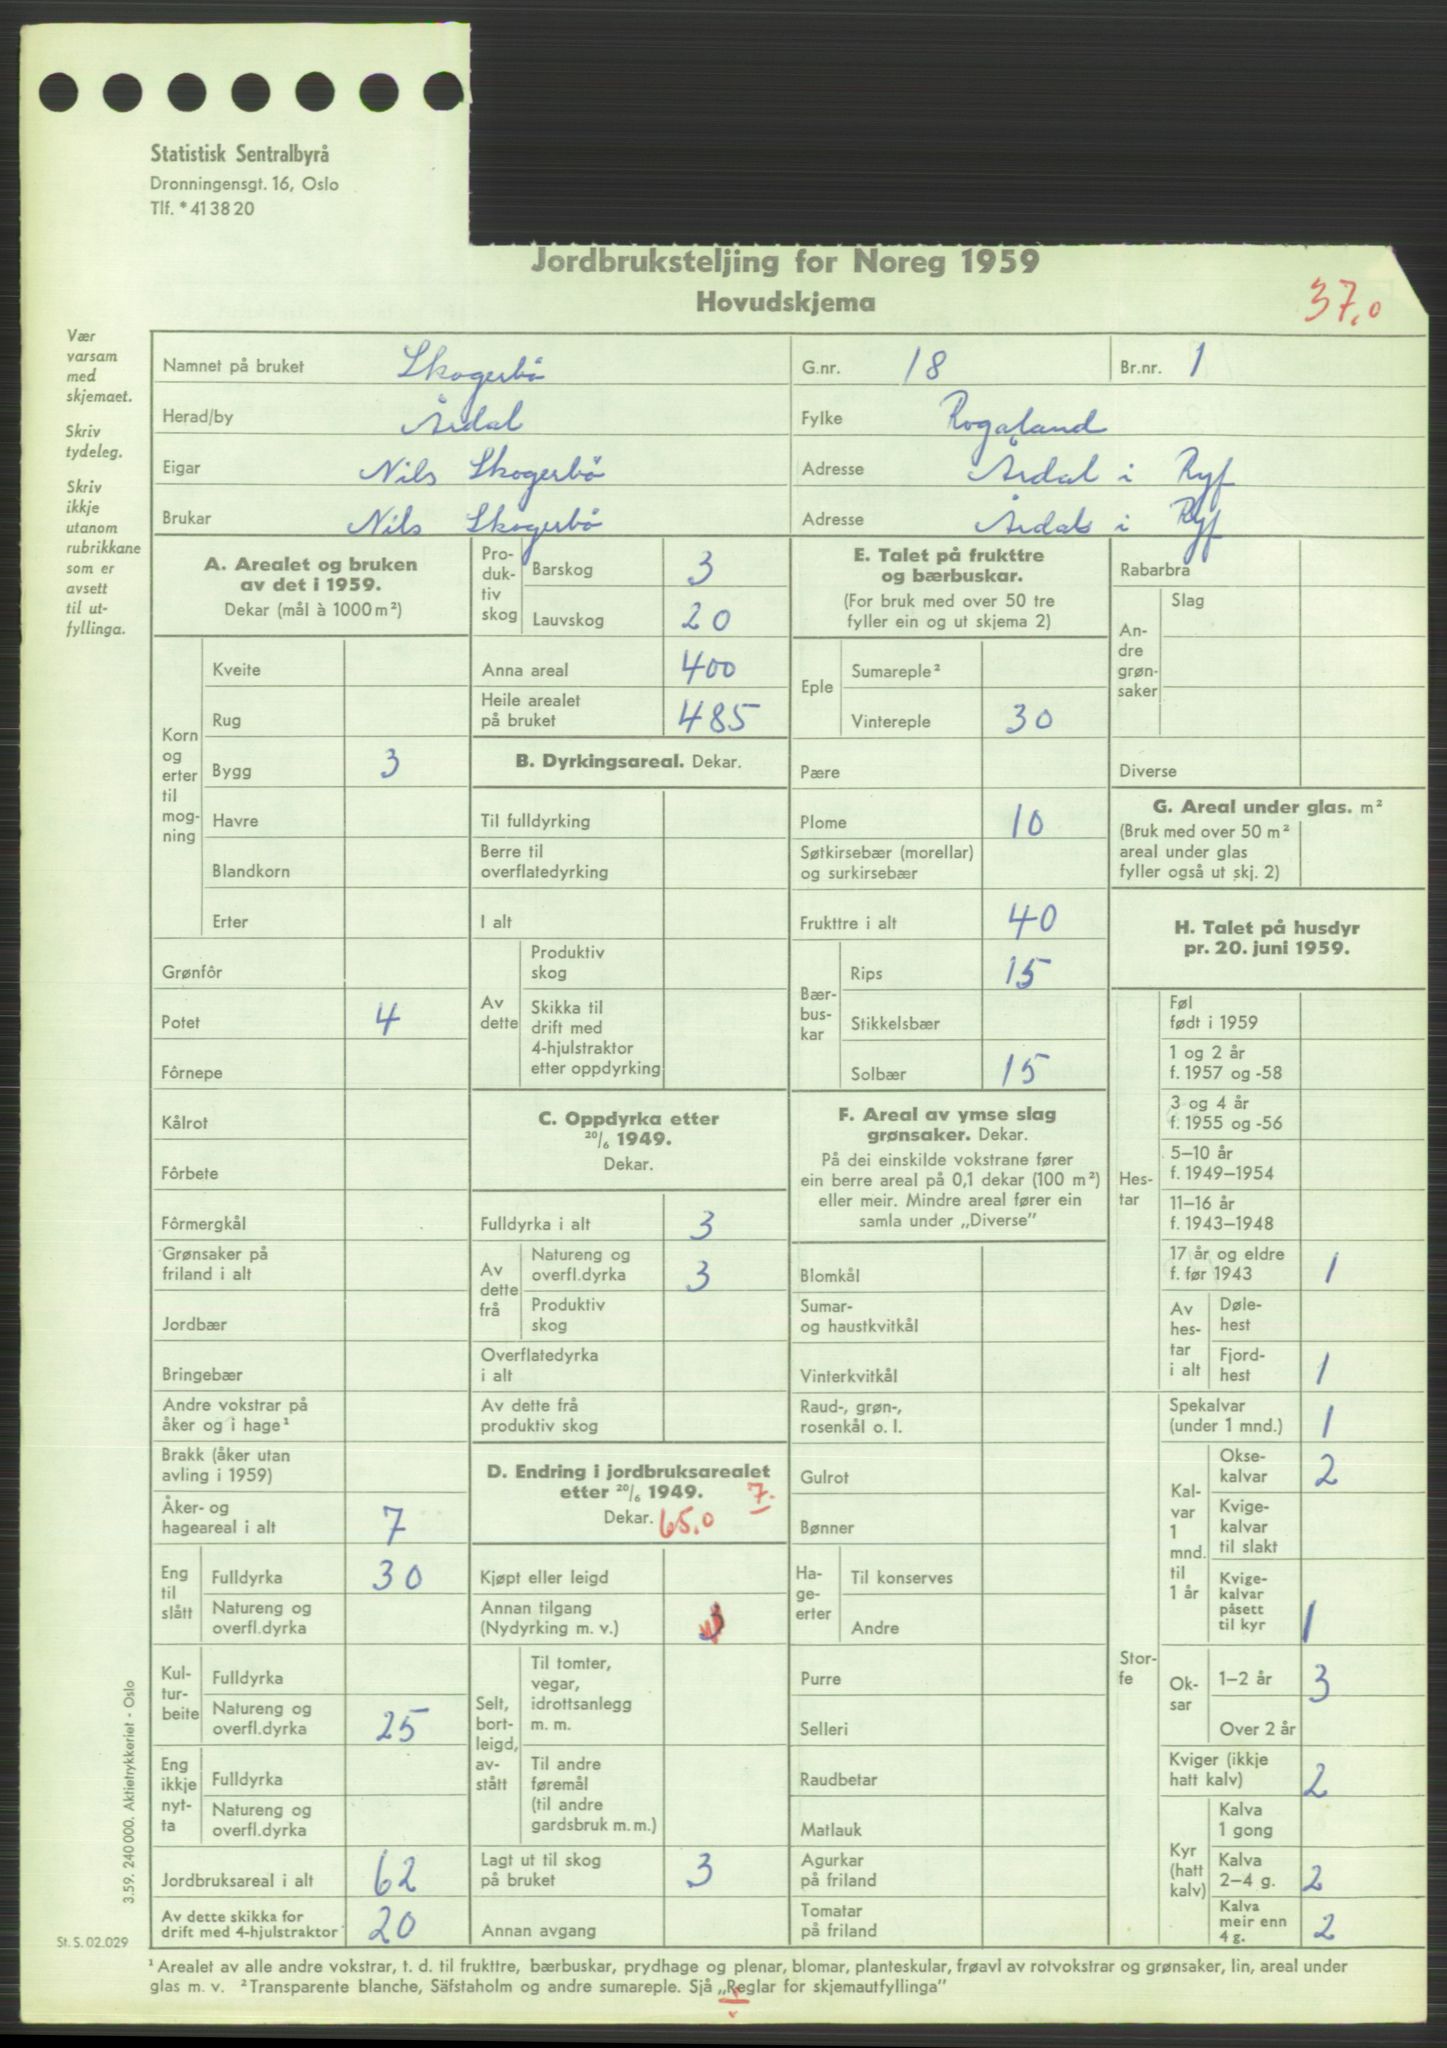 Statistisk Sentralbyrå
Dronningensgt. 16, Oslo
Tlf. *41 38 20
Jordbruksteljing for Noreg 1959
Hovudskjema
37,0
Vær
varsam
med
skjemaet.
Skriv
tydeleg.
Skriv
ikkje
utanom
rubrikkane
som er
avsett
til ut-
fyllinga.
Namnet på bruket Skogerbö G.nr. 18 Br.nr. 1
Herad/by Årdal Fylke Rogaland
Eigar Nils Skogerbö Adresse Årdal i Ryf
Brukar Nils Skogerbö Adresse Årdal i Ryf
A. Arealet og bruken
av det i 1959.
Dekar (mål à 1000 m²)
Korn
og
erter
til
mog-
ning
Kveite
Rug
Bygg 3
Havre
Blandkorn
Erter
Grønfôr
Potet 4
Fôrnepe
Kålrot
Fôrbete
Fôrmergkål
Grønsaker på
friland i alt
Jordbær
Bringebær
Andre vokstrar på
åker og i hage¹
Brakk (åker utan
avling i 1959)
Åker- og
hageareal i alt 7
Eng
til
slått
Fulldyrka 30
Natureng og
overfl.dyrka
Kul-
tur-
beite
Fulldyrka
Natureng og
overfl.dyrka 25
Eng
ikkje
nyt-
ta
Fulldyrka
Natureng og
overfl.dyrka
Jordbruksareal i alt 62
Av dette skikka for
drift med 4-hjulstraktor 20
Pro-
duk-
tiv
skog
Barskog 3
Lauvskog 20
Anna areal 400
Heile arealet
på bruket 485
B. Dyrkingsareal. Dekar.
Til fulldyrking
Berre til
overflatedyrking
I alt
Av
dette
Produktiv
skog
Skikka til
drift med
4-hjulstraktor
etter oppdyrking
C. Oppdyrka etter
20/6 1949.
Dekar.
Fulldyrka i alt 3
Av
dette
frå
Natureng og
overfl.dyrka 3
Produktiv
skog
Overflatedyrka
i alt
Av dette frå
produktiv skog
D. Endring i jordbruksarealet
etter 20/6 1949. 7.
Dekar. 65,0
Kjøpt eller leigd
Annan tilgang
(Nydyrking m. v.) 3
Selt,
bort-
leigd,
av-
stått
Til tomter,
vegar,
idrottsanlegg
m. m.
Til andre
føremål
(til andre
gardsbruk m. m.)
Lagt ut til skog
på bruket 3
Annan avgang
E. Talet på frukttre
og bærbuskar.
(For bruk med over 50 tre
fyller ein og ut skjema 2)
Eple
Sumareple²
Vintereple 30
Pære
Plome 10
Søtkirsebær (morellar)
og surkirsebær
Frukttre i alt 40
Bær-
bus-
kar
Rips 15
Stikkelsbær
Solbær 15
F. Areal av ymse slag
grønsaker. Dekar.
På dei einskilde vokstrane fører
ein berre areal på 0,1 dekar (100 m²)
eller meir. Mindre areal fører ein
samla under „Diverse"
Blomkål
Sumar-
og haustkvitkål
Vinterkvitkål
Raud-, grøn-,
rosenkål o. l.
Gulrot
Bønner
Ha-
ge-
erter
Til konserves
Andre
Purre
Selleri
Raudbetar
Matlauk
Agurkar
på friland
Tomatar
på friland
Rabarbra
An-
dre
grøn-
saker
Slag
Diverse
G. Areal under glas. m²
(Bruk med over 50 m²
areal under glas
fyller også ut skj. 2)
H. Talet på husdyr
pr. 20. juni 1959.
Hes-
tar
Føl
født i 1959
1 og 2 år
f. 1957 og -58
3 og 4 år
f. 1955 og -56
5–10 år
f. 1949–1954
11–16 år
f. 1943–1948
17 år og eldre
f. før 1943 1
Av
hes-
tar
i alt
Døle-
hest
Fjord-
hest 1
Stor-
fe
Spekalvar
(under 1 mnd.) 1
Kal-
var
1
mnd.
til
1 år
Okse-
kalvar 2
Kvige-
kalvar
til slakt
Kvige-
kalvar
påsett
til kyr 1
Ok-
sar
1–2 år 3
Over 2 år
Kviger (ikkje
hatt kalv) 2
Kyr
(hatt
kalv)
Kalva
1 gong
Kalva
2–4 g. 2
Kalva
meir enn
4 g. 2
3.59. 240 000. Aktietrykkeriet - Oslo
St. S. 02.029
¹ Arealet av alle andre vokstrar, t. d. til frukttre, bærbuskar, prydhage og plenar, blomar, planteskular, frøavl av rotvokstrar og grønsaker, lin, areal under
glas m. v. ² Transparente blanche, Säfstaholm og andre sumareple. Sjå „Reglar for skjemautfyllinga"